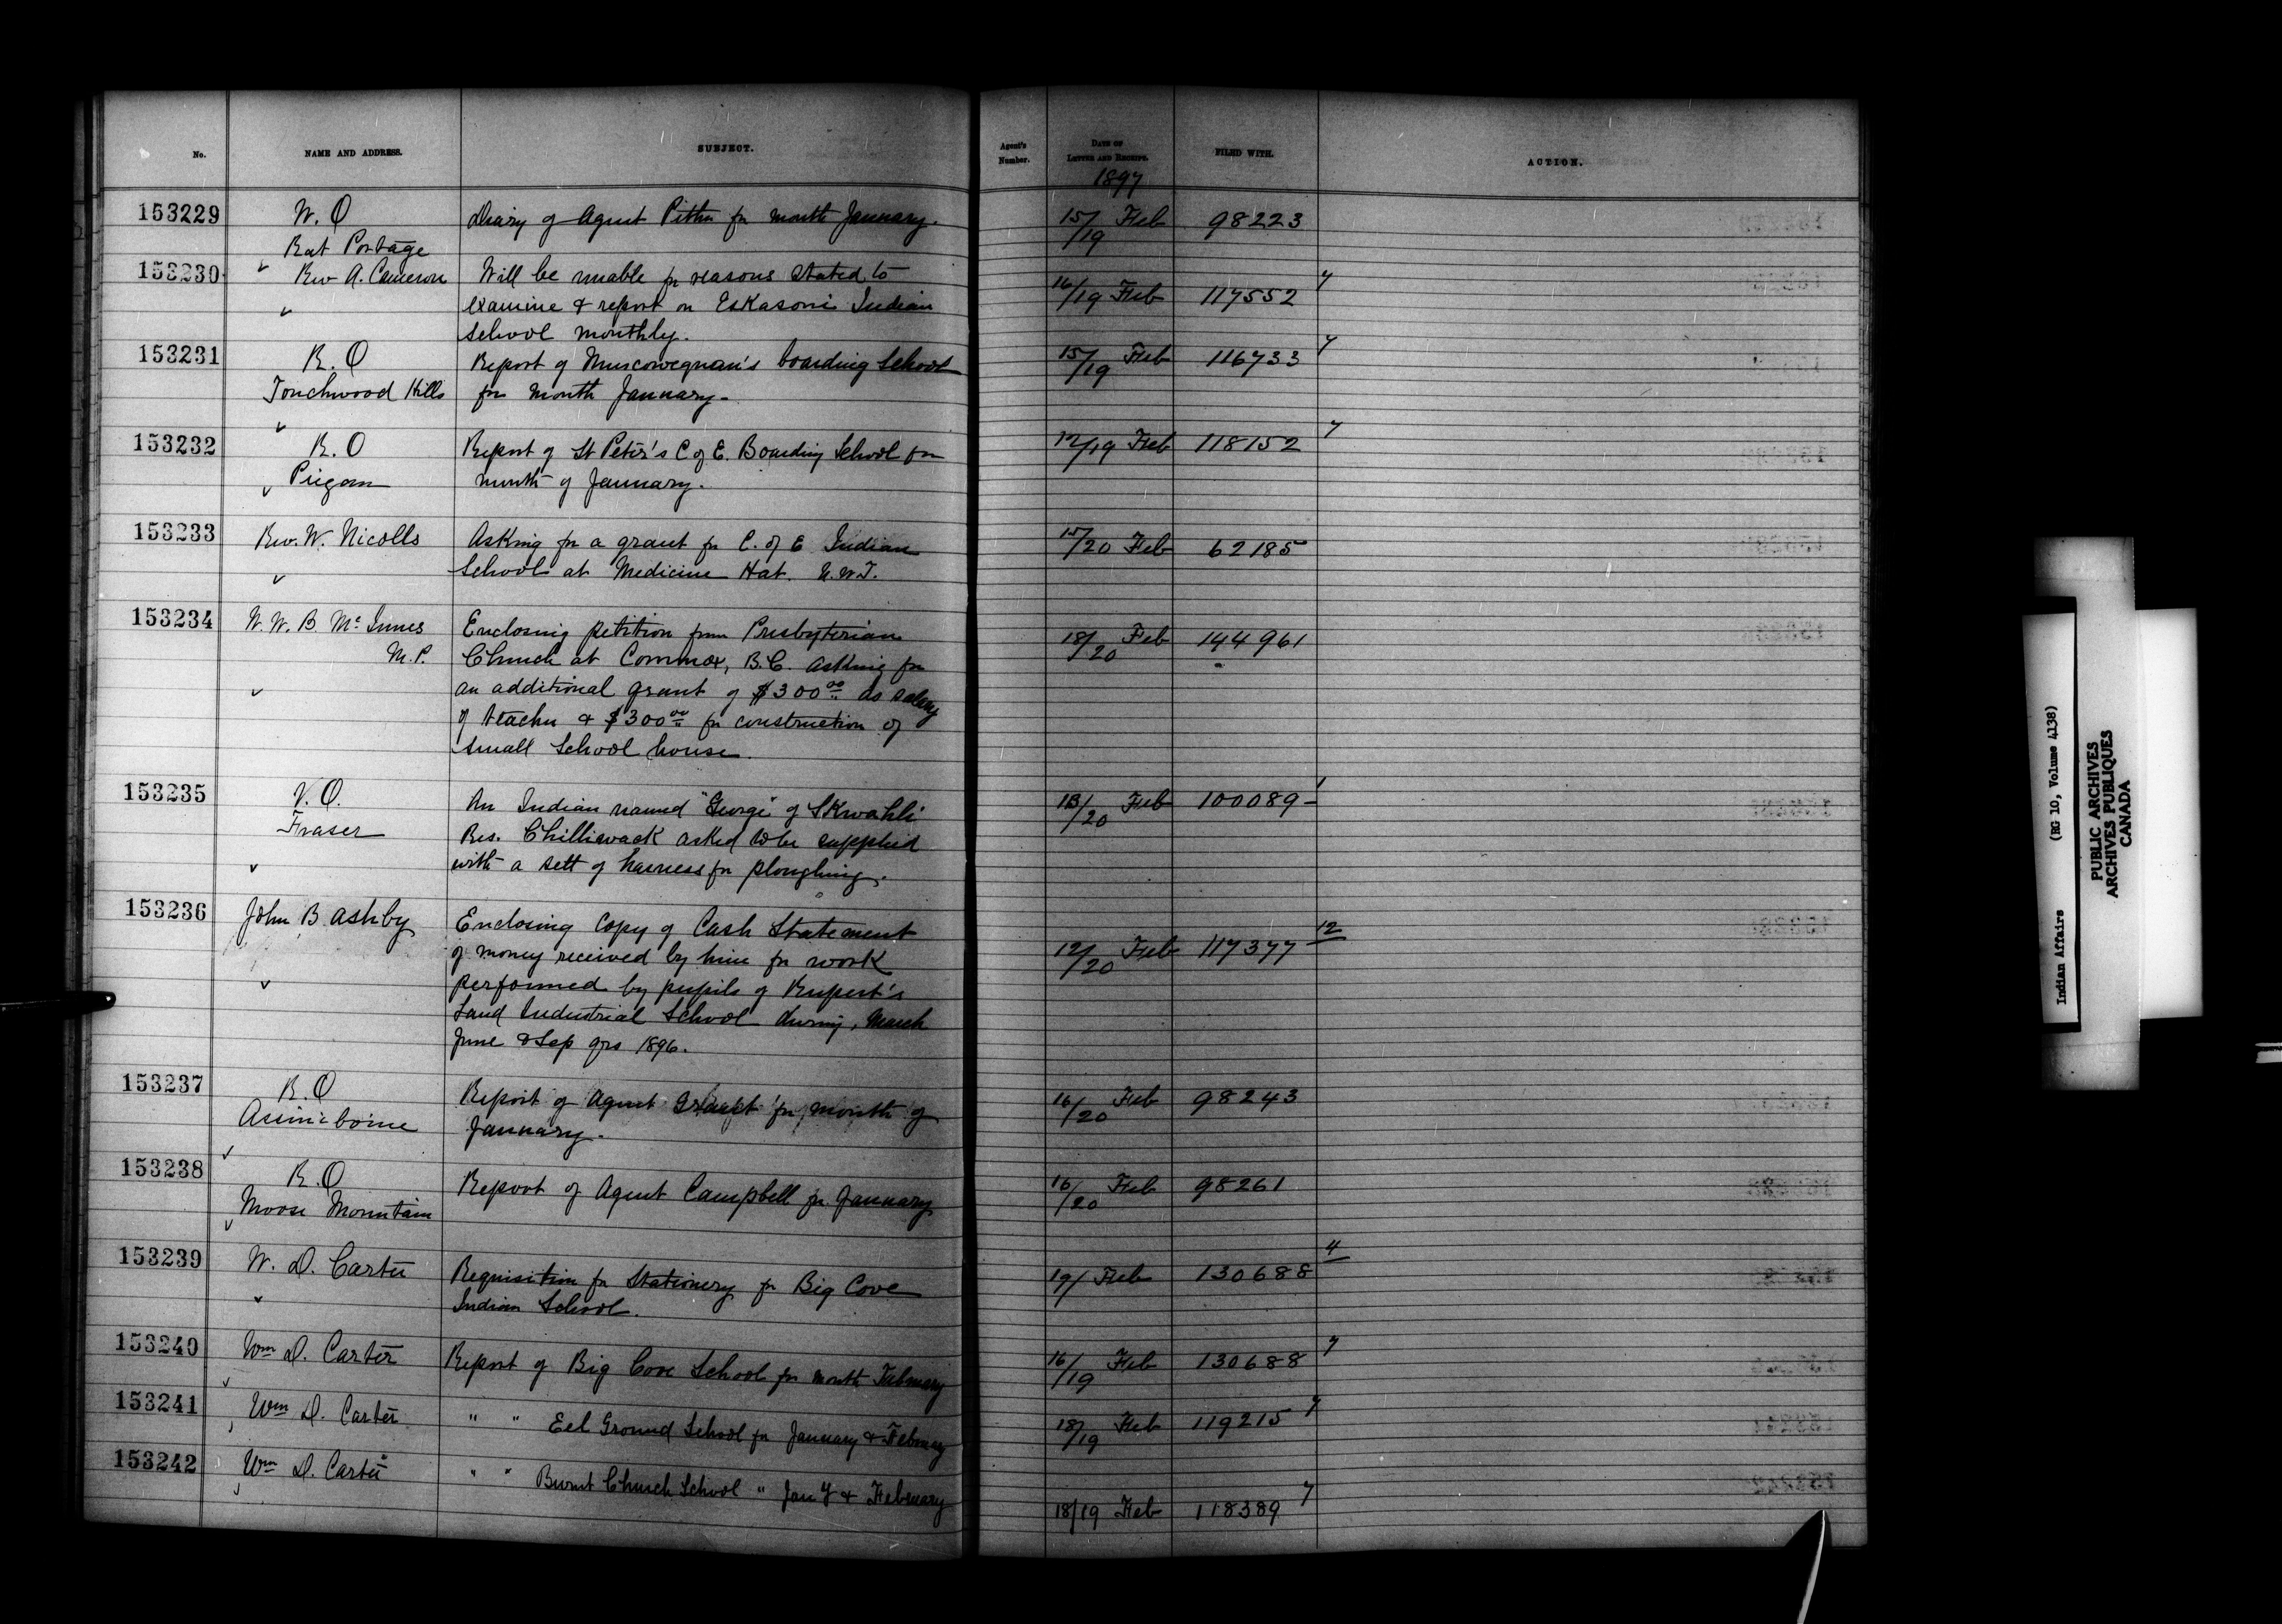 No. NAME AND ADDRESS. SUBJECT. Agent's Number. DATE OF LETTER AND RECEIPT. FILED WITH. ACTION.
1897
153229 W. O Diary of Agent Pither for month January. 15/19 Feb 98223
Rat Portage
153230 Rev A. Cameron Will be unable for reasons stated to 16/19 Feb 117552 7
examine & report on Eskasoni Indian
School monthly.
153231 R. O Report of Muscowequan's boarding School 15/19 Feb 116733 7
Touchwood Hills for month January-
153232 R. O Report of St Peter's C of E. Boarding School for 12/19 Feb 118152 7
Piegan month of January.
153233 Rev. W. Nicolls Asking for a grant for C. of E Indian 15/20 Feb 62185
School at Medicine Hat. N.W.T.
153234 W. W. B. Mc Innes Enclosing petition from Presbyterian 18/20 Feb 144961
M.P. Church at Commox, B.C. asking for
an additional grant of $300 00 as salary
of teacher & $300 00 for construction of
small School house.
153235 V. O. An Indian named "George" of Skwahli 13/20 Feb 100089-1
Fraser Res. Chilliwack asked to be supplied
with a sett of harness for ploughing.
153236 John B Ashby Enclosing copy of Cash Statement 12/20 Feb 117377 12
of money received by him for work
performed by pupils of Rupert's
Land Industrial School during, March
June & Sep qrs 1896.
153237 R. O Report of Agent Grant for month of 16/20 Feb 98243
Assiniboine January.
153238 R. O Report of Agent Campbell for January 16/20 Feb 98261
Moose Mountain
153239 W. D. Carter Requisition for Stationery for Big Cove 19/ Feb 130688 4
Indian School.
153240 Wm D. Carter Report of Big Cove School for month February 16/19 Feb 130688 7
153241 Wm D. Carter " " Eel Ground School for January & February 18/19 Feb 119215 7
153242 Wm D. Carter " " Burnt Church School " Jany & February 18/19 Feb 118389 7
Indian Affairs (RG 10, Volume 4138)
PUBLIC ARCHIVES
ARCHIVES PUBLIQUES
CANADA